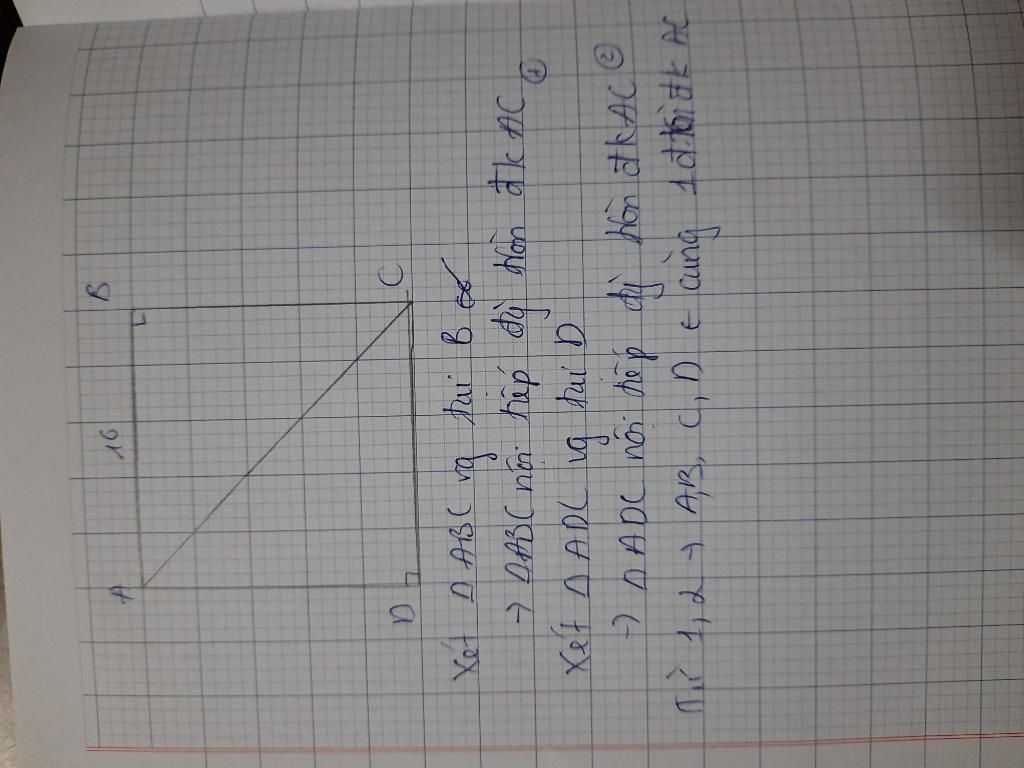 A 16 B
D C
Xét ΔABC vg tại B
→ ΔABC nội tiếp đg tròn đk AC ①
Xét Δ ADC vg tại D
→ Δ ADC nội tiếp đg tròn đk AC ②
Từ 1, 2 → A, B, C, D ∈ cùng 1 đk AC